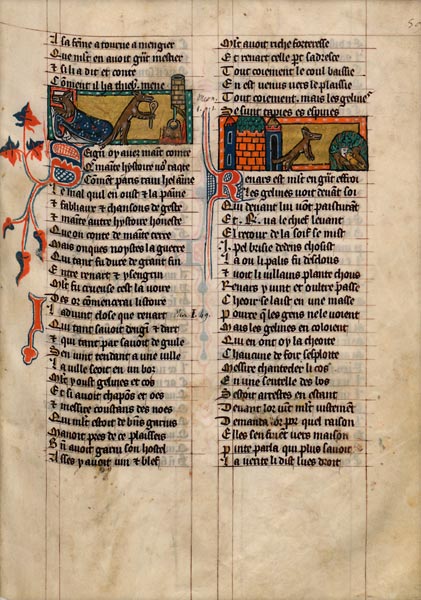 A sa feme a tourne a mengier
Que mlt en avoit gnt mestier
Et si li a dit et conte
Coment il ha thiev mene
Seignr oy avez maint conte
Et mainte hystoire vo raqte
Coment paris ravi helaine
Le mal quil en oust et la paine
Et fabliaus et chansons de geste
Et mainte autre hystoire honeste
Que on conte de mainte terre
Mais onques noystes la guerre
Qui tant fu dure de grant fin
Entre renart et ysengrin
Mlt fu crueuse cest la voire
Des or comenerai listoire
Il advint chose que renart
Qui tant savoit dengin et dart
Et qui tant par savoit de guile
Sen vint tendant a une ville
La ville seoit en un bos
Mlt y oust gelines et cos
Et si avoit chapons et oes
Et messire constans des noes
Qui mlt estoit de bns garnis
Manoit pres de ce plaisseis
Bn avoit garni son hostel
Asses y avoit vin et blef
Mlt avoit riche forteresse
Et renart celle pt sadresce
Tout coiement le coul baissie
En est venus vers le plaissie
Tout coiement, mais les gelines
Se sunt tapies es espines
Renars est mlt en gnt effroi
Les gelines voit devant soi
Qui devant lui vont paisturant
Et .R. va le chief levant
El retor de la soif se mist
.I. pel brise dedens choisit
La ou li palis fu desclous
Et voit li villains plante chous
Renars y vint et oultre passe
Cheoir se laist en une masse
Pource que les gens ne le voient
Mais les gelines en coloient
Qui en ont oy la cheoite
Chascune de foir sesploite
Messire chantecler li cos
En une sentelle des bos
Sestoit arrestes en estant
Devant lor vint mlt vistement
Demanda lor por quel raison
Elles senfuient vers maison
Pinte parla qui plus savoit
La verite li dist lues droit